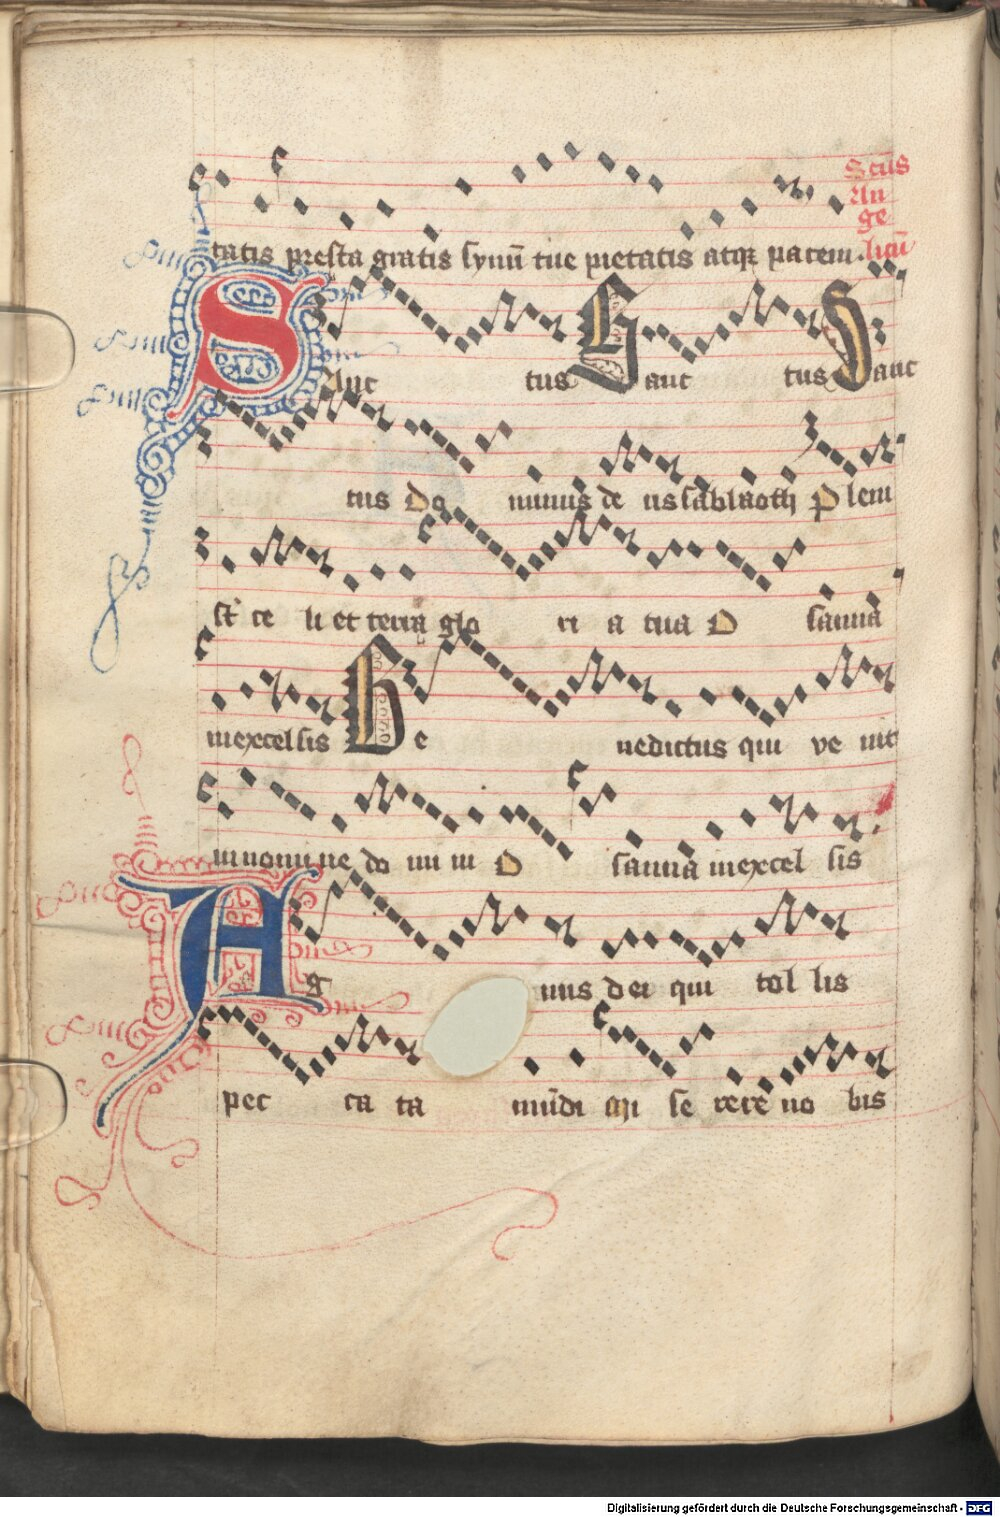 Scũs
An
ge
tatis presta gratis synũ tue pietatis atqꝫ pacem. licũ
Sanc tus Sanc tus Sanc
tus Do minus de us sabbaoth Plem
st̃ ce li et terra glo ri a tua O sanna
inexcelsis Be nedictus qui ve nit
in nomi ne do mi ni O sanna inexcel sis
Ag nus dei qui tol lis
pec ca ta mũdi se rere no bis
Digitalisierung gefördert durch die Deutsche Forschungsgemeinschaft - DFG